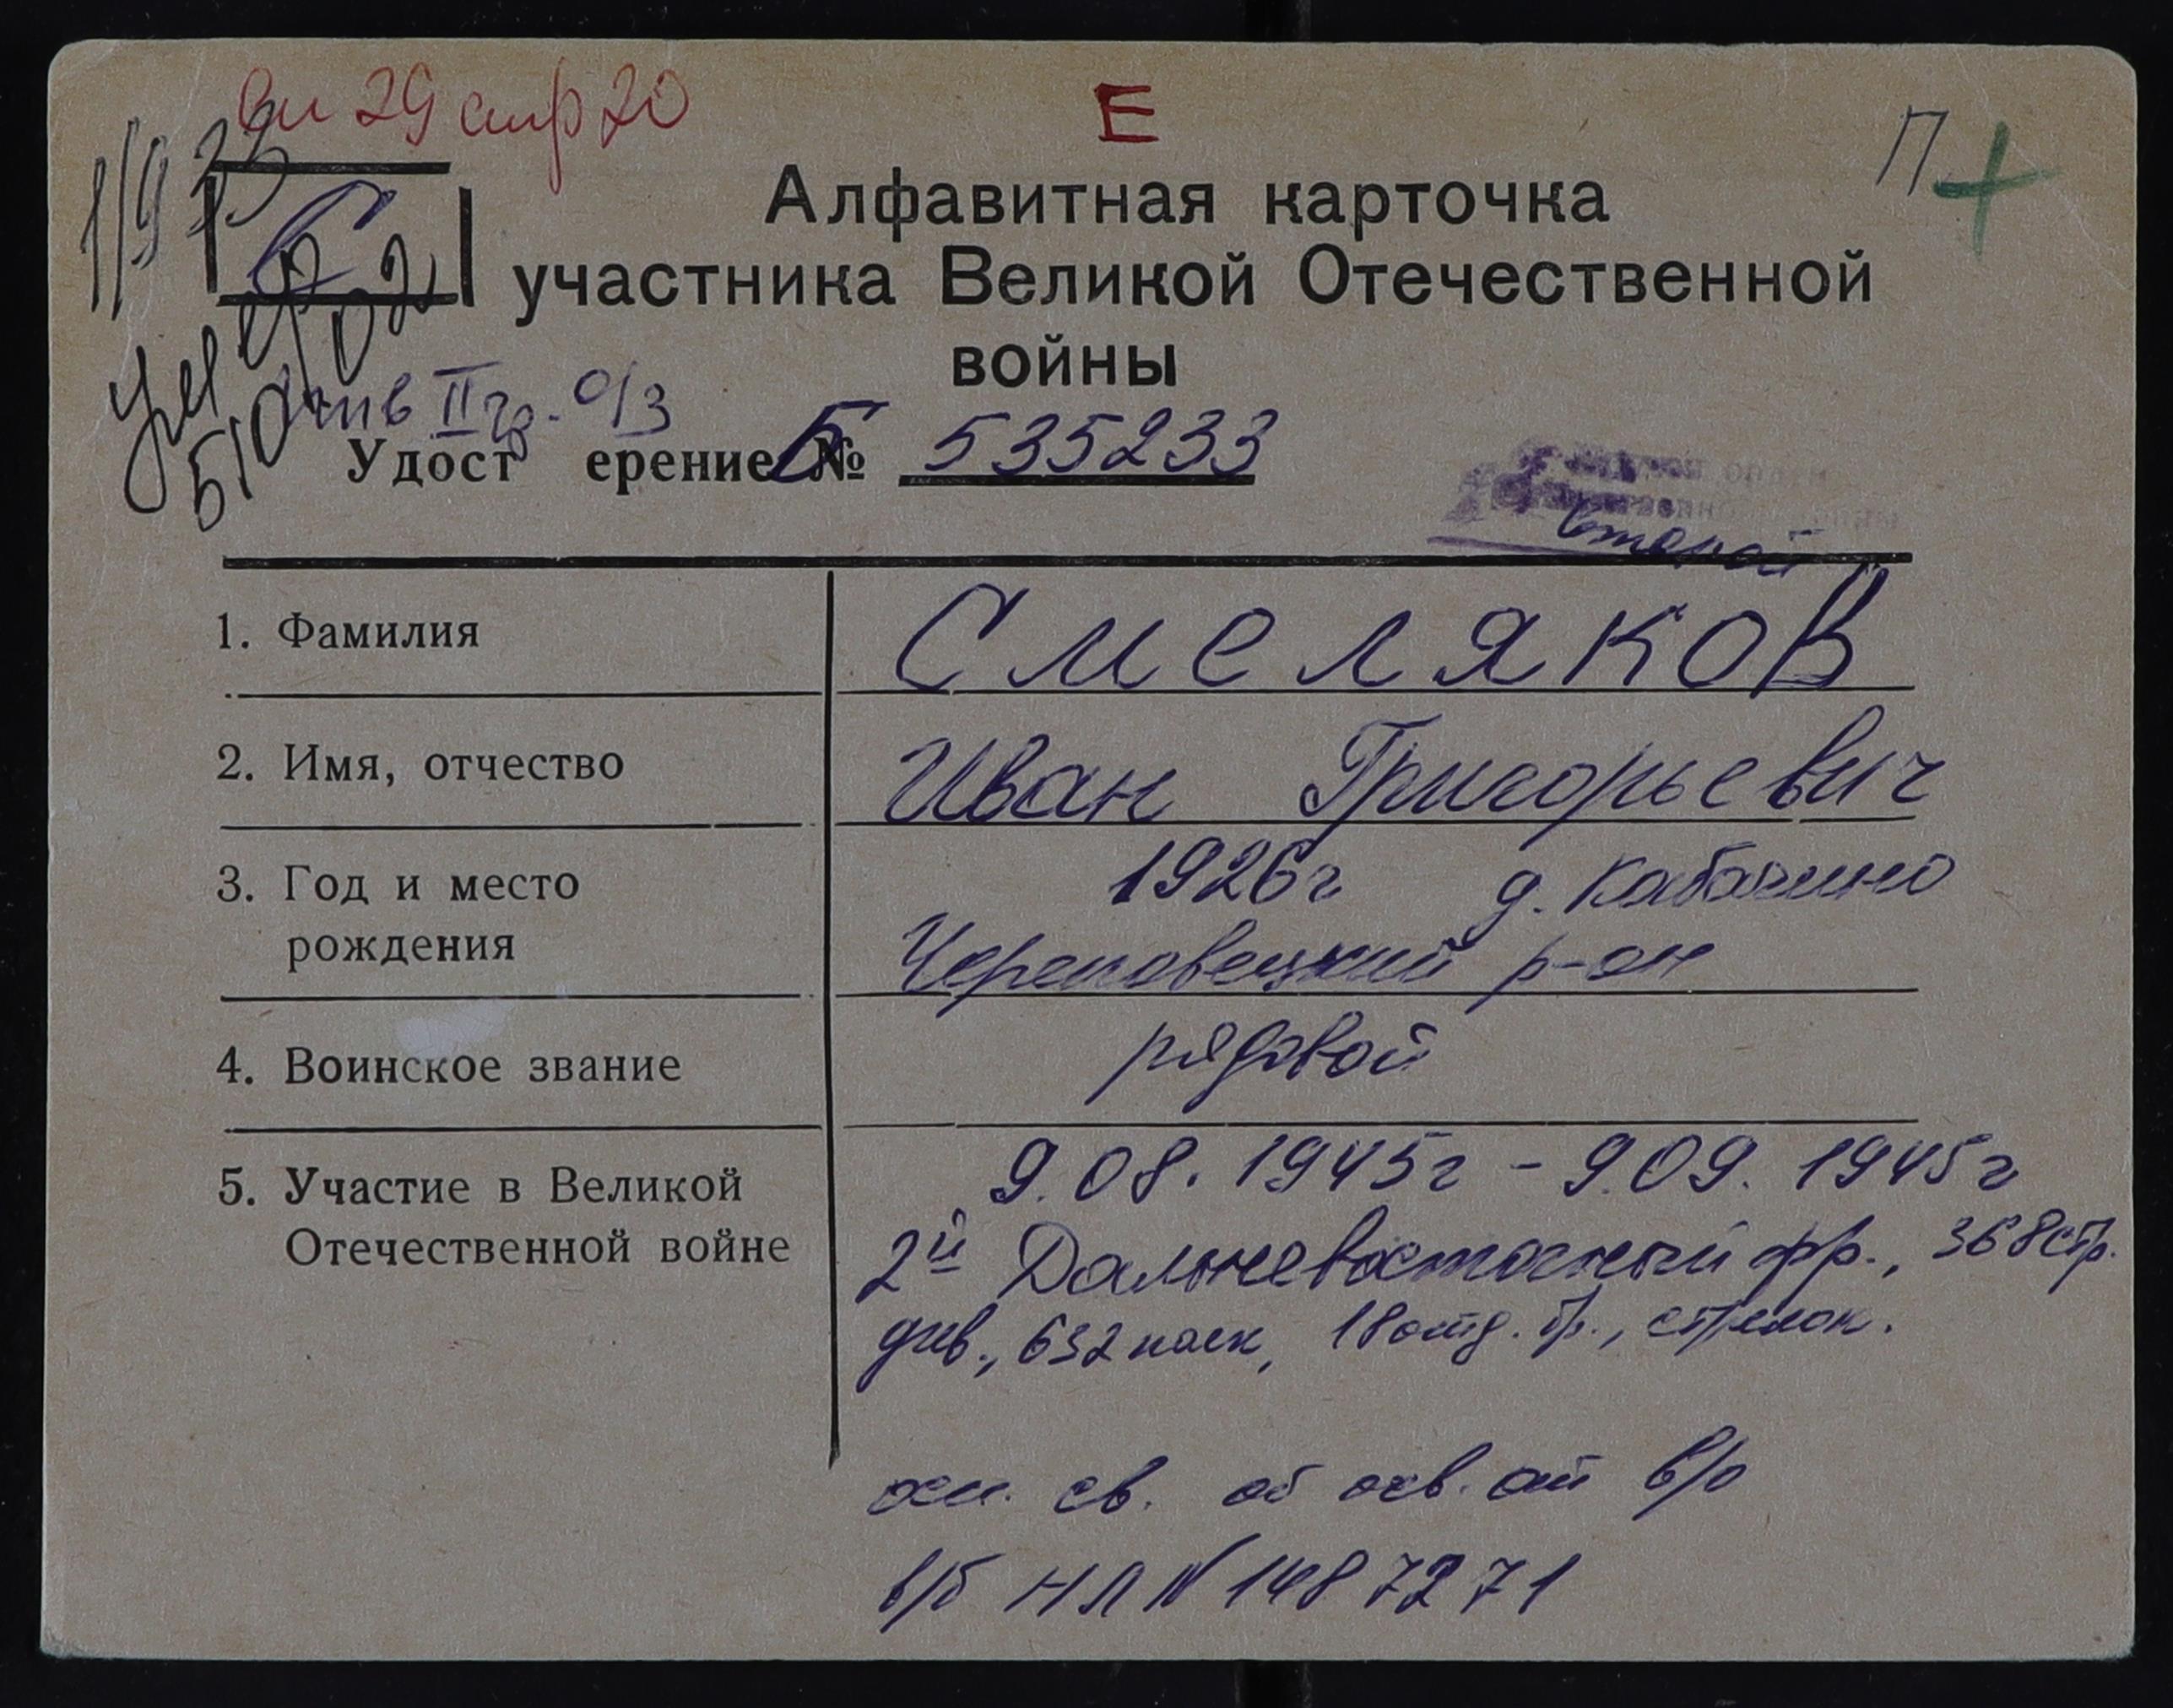 29 апр 20
Е
П
1/933
С
Алфавитная карточка
участника Великой Отечественной
войны
инв II гр. о/з
Удост ерение Б № 535233
второй
1. Фамилия Смеляков
2. Имя, отчество Иван Григорьевич
3. Год и место 1926г д. Кабачино
рождения Череповецкий р-он
4. Воинское звание рядовой
5. Участие в Великой 9.08.1945г - 9.09.1945г
Отечественной войне 2й Дальневосточный фр., 368 стр.
див., 632 полк, 18 отд. бр., стрелок.
осн. св. об осв. от в/о
в/б НЛ N 1487271